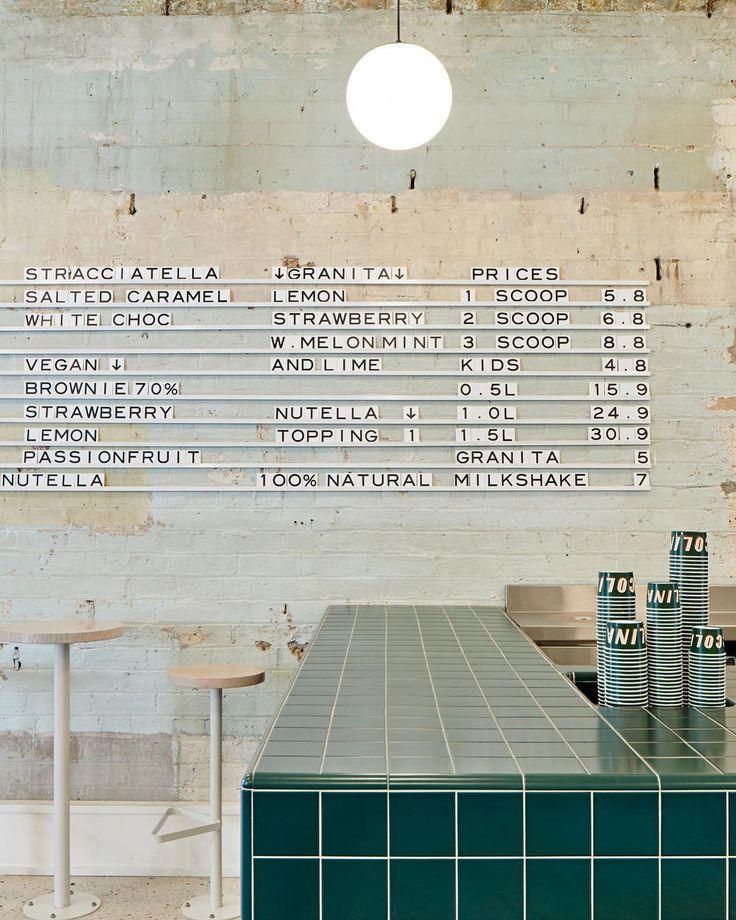 STRACCIATELLA ↓GRANITA↓ PRICES
SALTED CARAMEL LEMON 1 SCOOP 5.8
WHITE CHOC STRAWBERRY 2 SCOOP 6.8
W.MELON MINT 3 SCOOP 8.8
VEGAN ↓ AND LIME KIDS 4.8
BROWNIE 70% 0.5L 15.9
STRAWBERRY NUTELLA ↓ 1.0L 24.9
LEMON TOPPING 1 1.5L 30.9
PASSIONFRUIT GRANITA 5
NUTELLA 100% NATURAL MILKSHAKE 7
COLI
LINA
LINA
COLI
COLI